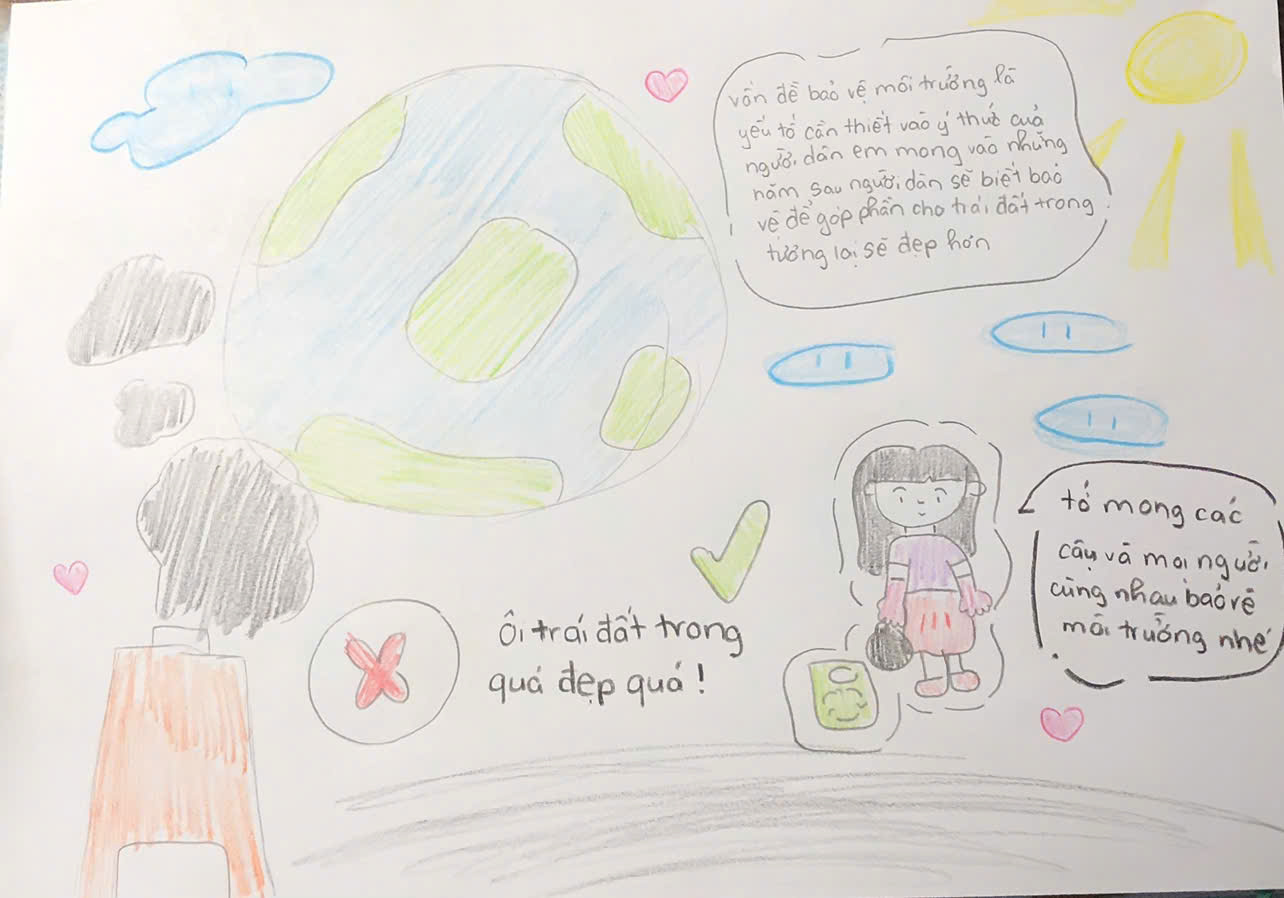 vấn đề bảo vệ môi trường là
yếu tố cần thiết vào ý thức của
người dân em mong vào những
năm sau người dân sẽ biết bảo
vệ để góp phần cho trái đất trong
tương lại sẽ đẹp hơn
tớ mong các
cậu và mọi người
cùng nhau bảo vệ
môi trường nhé
Ôi trái đất trong
quá đẹp quá!